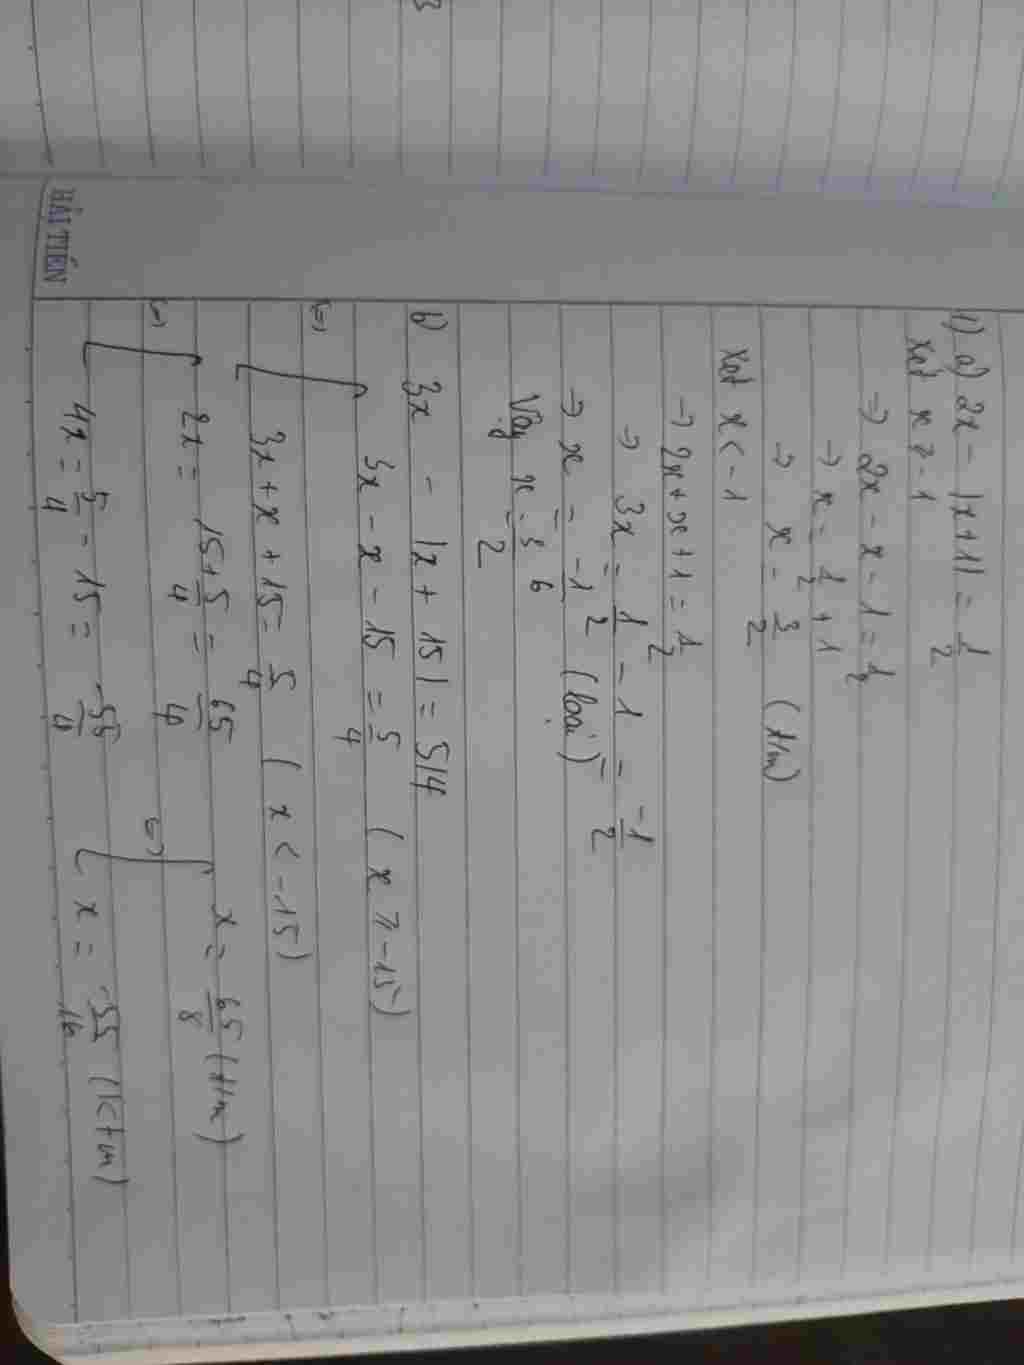 1) a) 2x - |x+1| = 1/2
Xét x ≥ -1
⇒ 2x - x - 1 = 1/2
→ x = 1/2 + 1
⇒ x = 3/2 (t/m)
Xét x < -1
→ 2x + x + 1 = 1/2
→ 3x = 1/2 - 1 = -1/2
⇒ x = -1/6 (loại)
Vậy x = 3/2
b) 3x - |x + 15| = 5/4
3x - x - 15 = 5/4 (x ≥ -15)
⇔ 3x + x + 15 = 5/4 (x < -15)
2x = 15 + 5/4 = 65/4 x = 65/8 (t/m)
⇔ 4x = 5/4 - 15 = -55/4 ⇔ x = -55/16 (ktm)
HẢI TIẾN